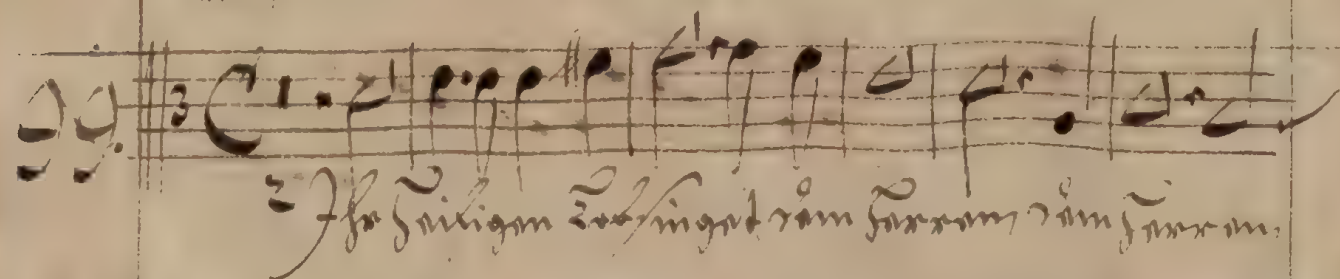 99.
Ihr Heiligen Lobsinget dem Herren, dem Herren.